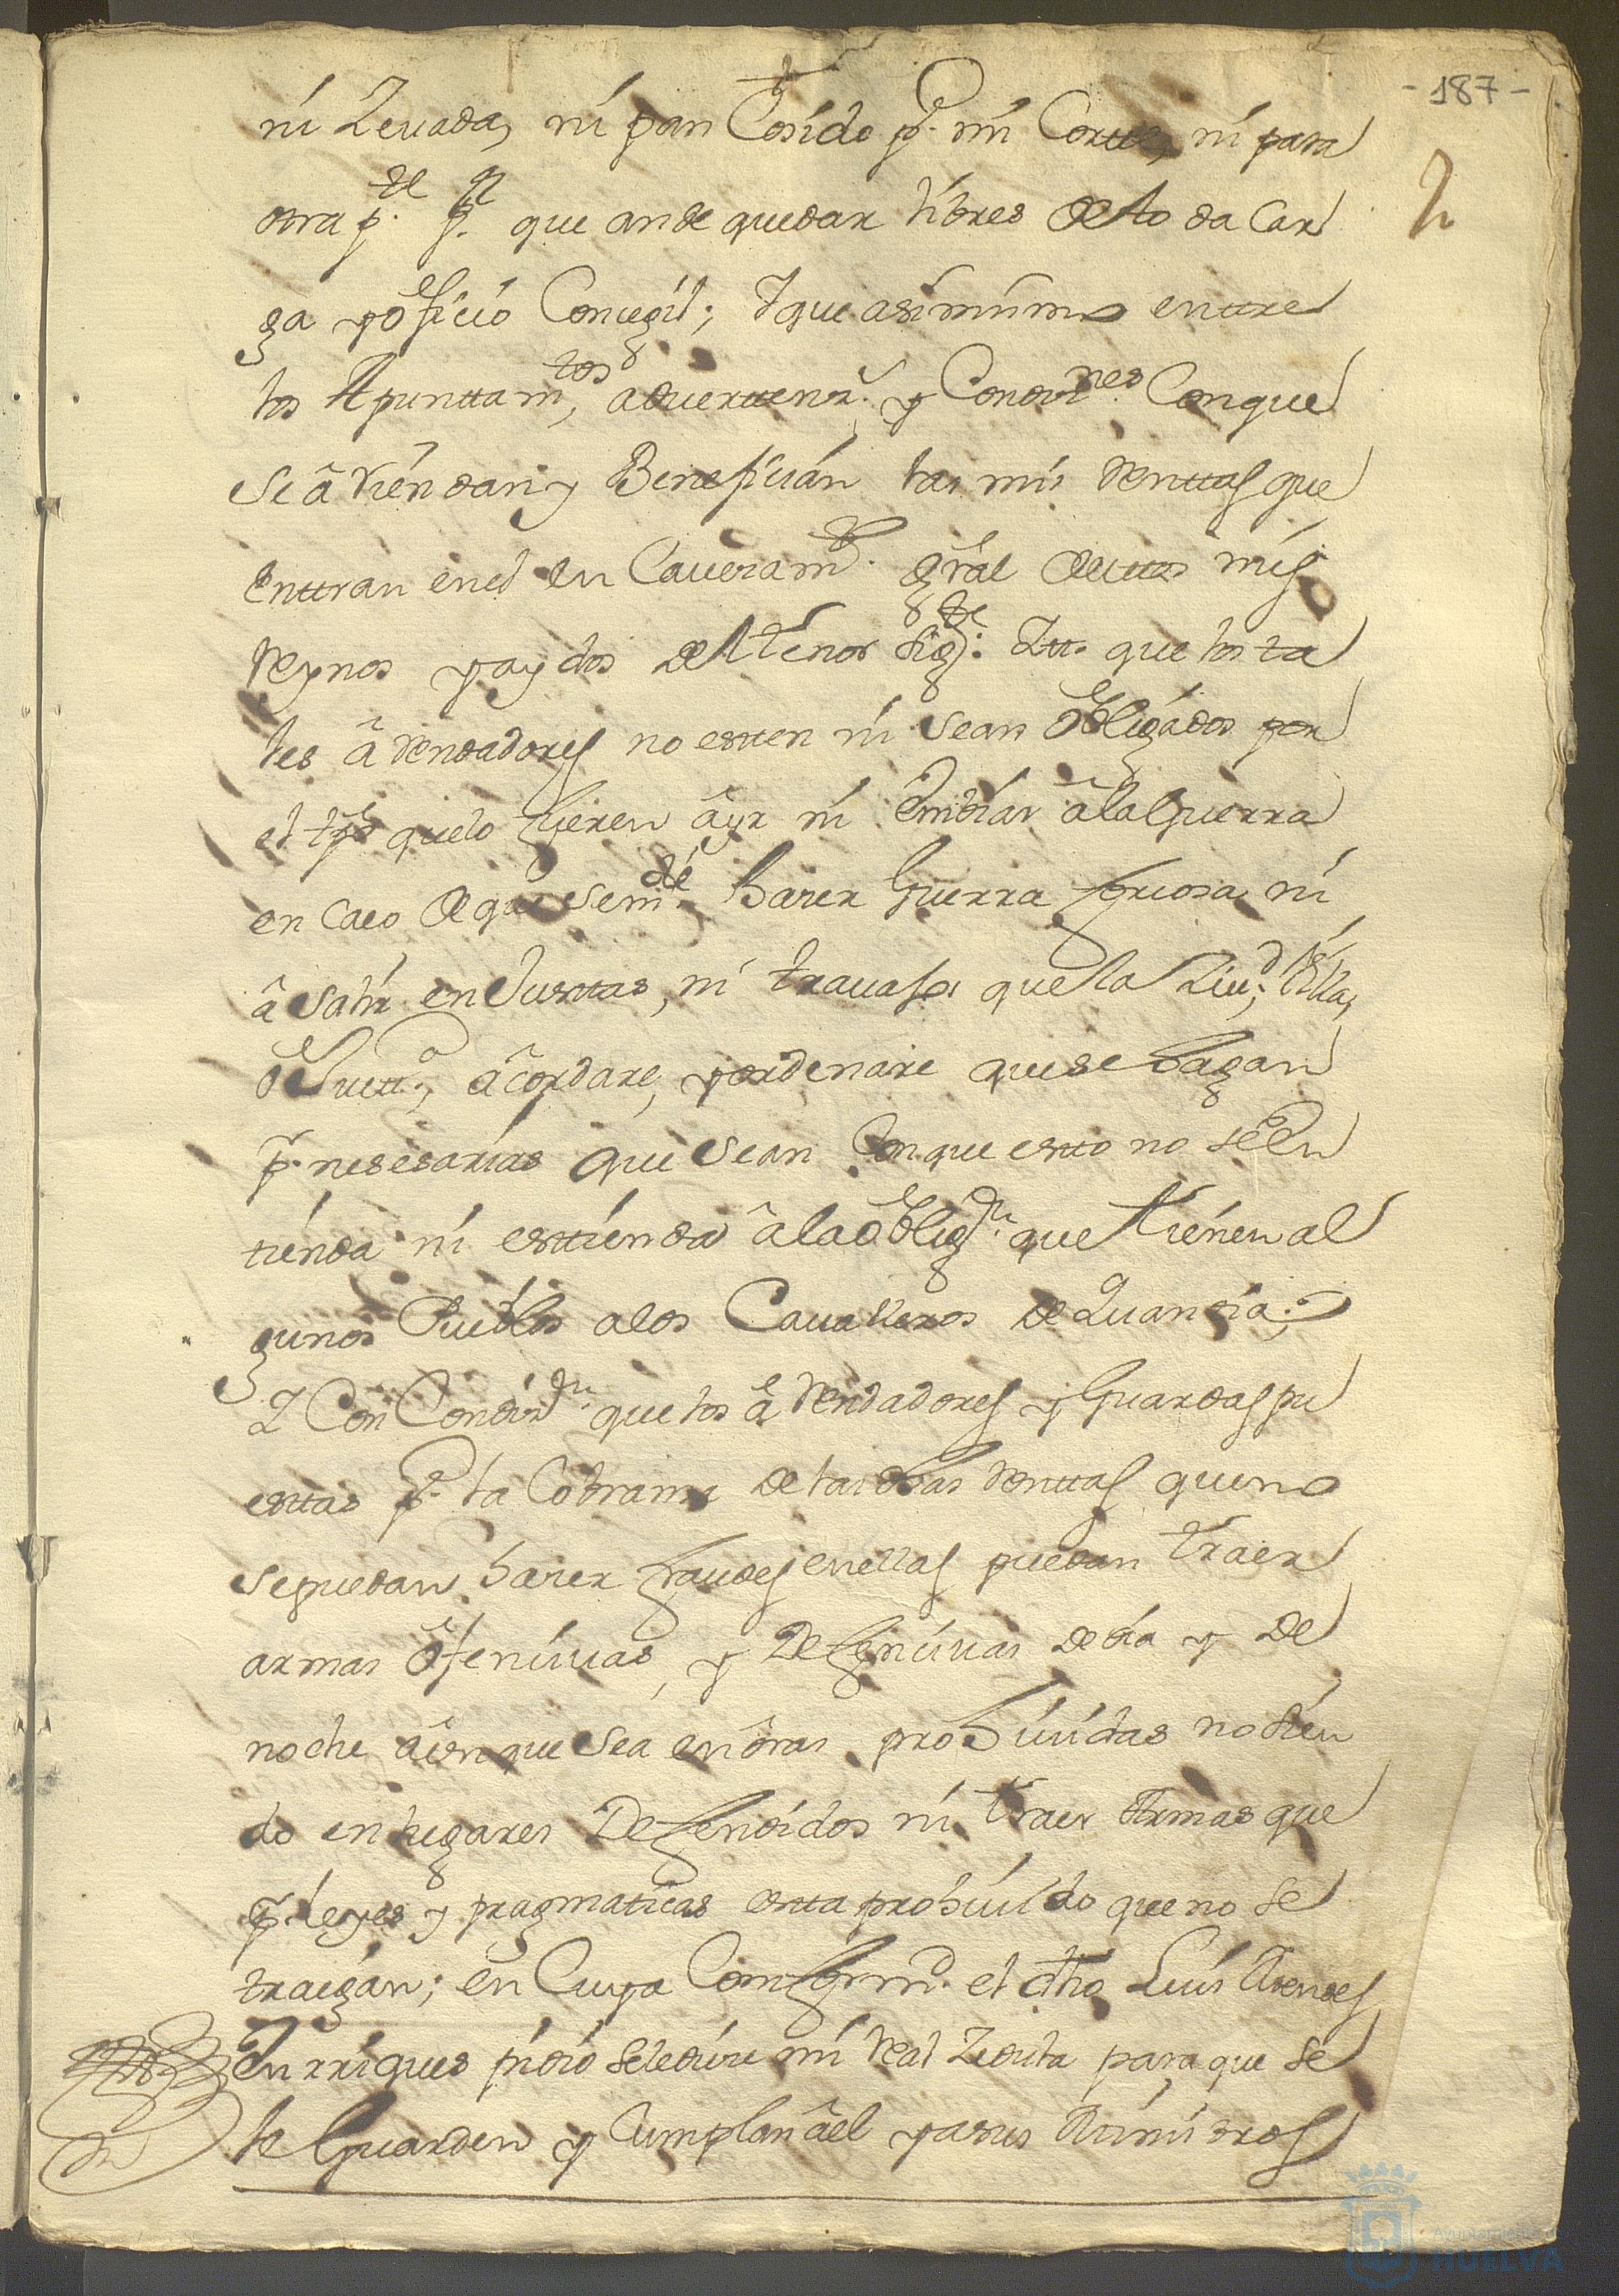 -187-
ni Zevada, ni pan Cosido p.ª mi Corte, ni para
otra p.te p.r que an de quedar libres de toda Car
ga y oficio Concegil; Y que asimismo entre
los Apunttam.tos, adverttenz.s y Condiz.nes Con que
se âriendan y Benefician las mis Renttas que
enttran en el en Cavezam.to gral de ttos mis
Reynos y ay dos del tenor sig.te: Itt. que los ta
les ârendadores no esten ni sean obligados por
el tpô que lo fueren â yr ni embiar â la Guerra
en caso de que se m.de hazer Guerra forzosa ni
â salir en Juntas, ni travajos que la Ziu.d, Villa,
ô Puertt.o, acordare, y ordenare que se hagan
p.r nesesarias que sean Con que esto no se en
tienda ni esttienda â la obligaz.n que tienen al
gunos Pueblos a los Cavalleros de Quantia;
Y Con Condiz.n que los ârendadores y Guardas pu
esttas p.ª la Cobranza de las dhas Renttas que no
se puedan hazer fraudes en ellas puedan traer
armas ofensivas, y Defensivas de dia y de
noche âunque sea en oras prohividas no sien
do en lugares Defendidos ni traer Armas que
p.r leyes y pragmaticas estta prohivido que no se
traigan; en Cuya Comform.d el dho Luis Mendes
Enrriques pidio se le diese mi Real Zedula para que se
le Guarden y Cumplan â el y a sus Ministros
Ayuntamiento de
HUELVA